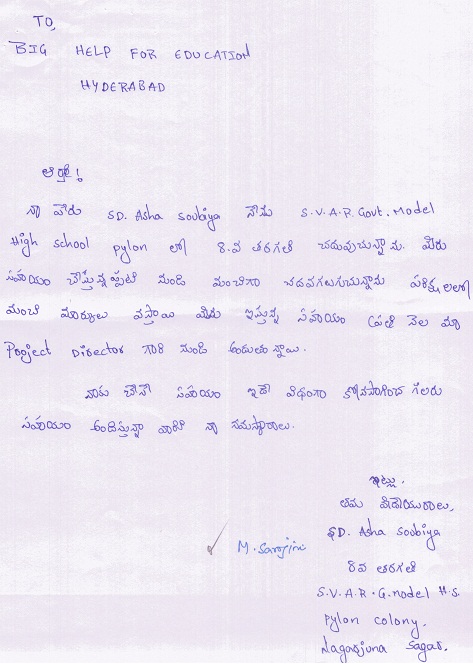 TO,
BIG HELP FOR EDUCATION
HYDERABAD
ఆర్యా!
నా పేరు SD. Asha Soubiya నేను S.V.A.R. Govt. Model
High school pylon లో 8.వ తరగతి చదువుచున్నాను. మీరు
సహాయం చేస్తున్నప్పటి నుండి మంచిగా చదవగలుగుచున్నాను పరీక్షలలో
మంచి మార్కులు వస్తాయి మీరు ఇస్తున్న సహాయం ప్రతి నెల మా
Project Director గారి నుండి అందుతున్నాయి.
నాకు చేసే సహాయం ఇదే విధంగా కోనసాగించ గలరు
సహాయం అందిస్తున్నా వారికి నా నమస్కారాలు.
ఇట్లు.
తమ విదేయురాలు,
SD. Asha Soubiya
M. Sarojini
8వ తరగతి
S.V.A.R. G. model H.S.
Pylon colony.
Nagarjuna Sagar.